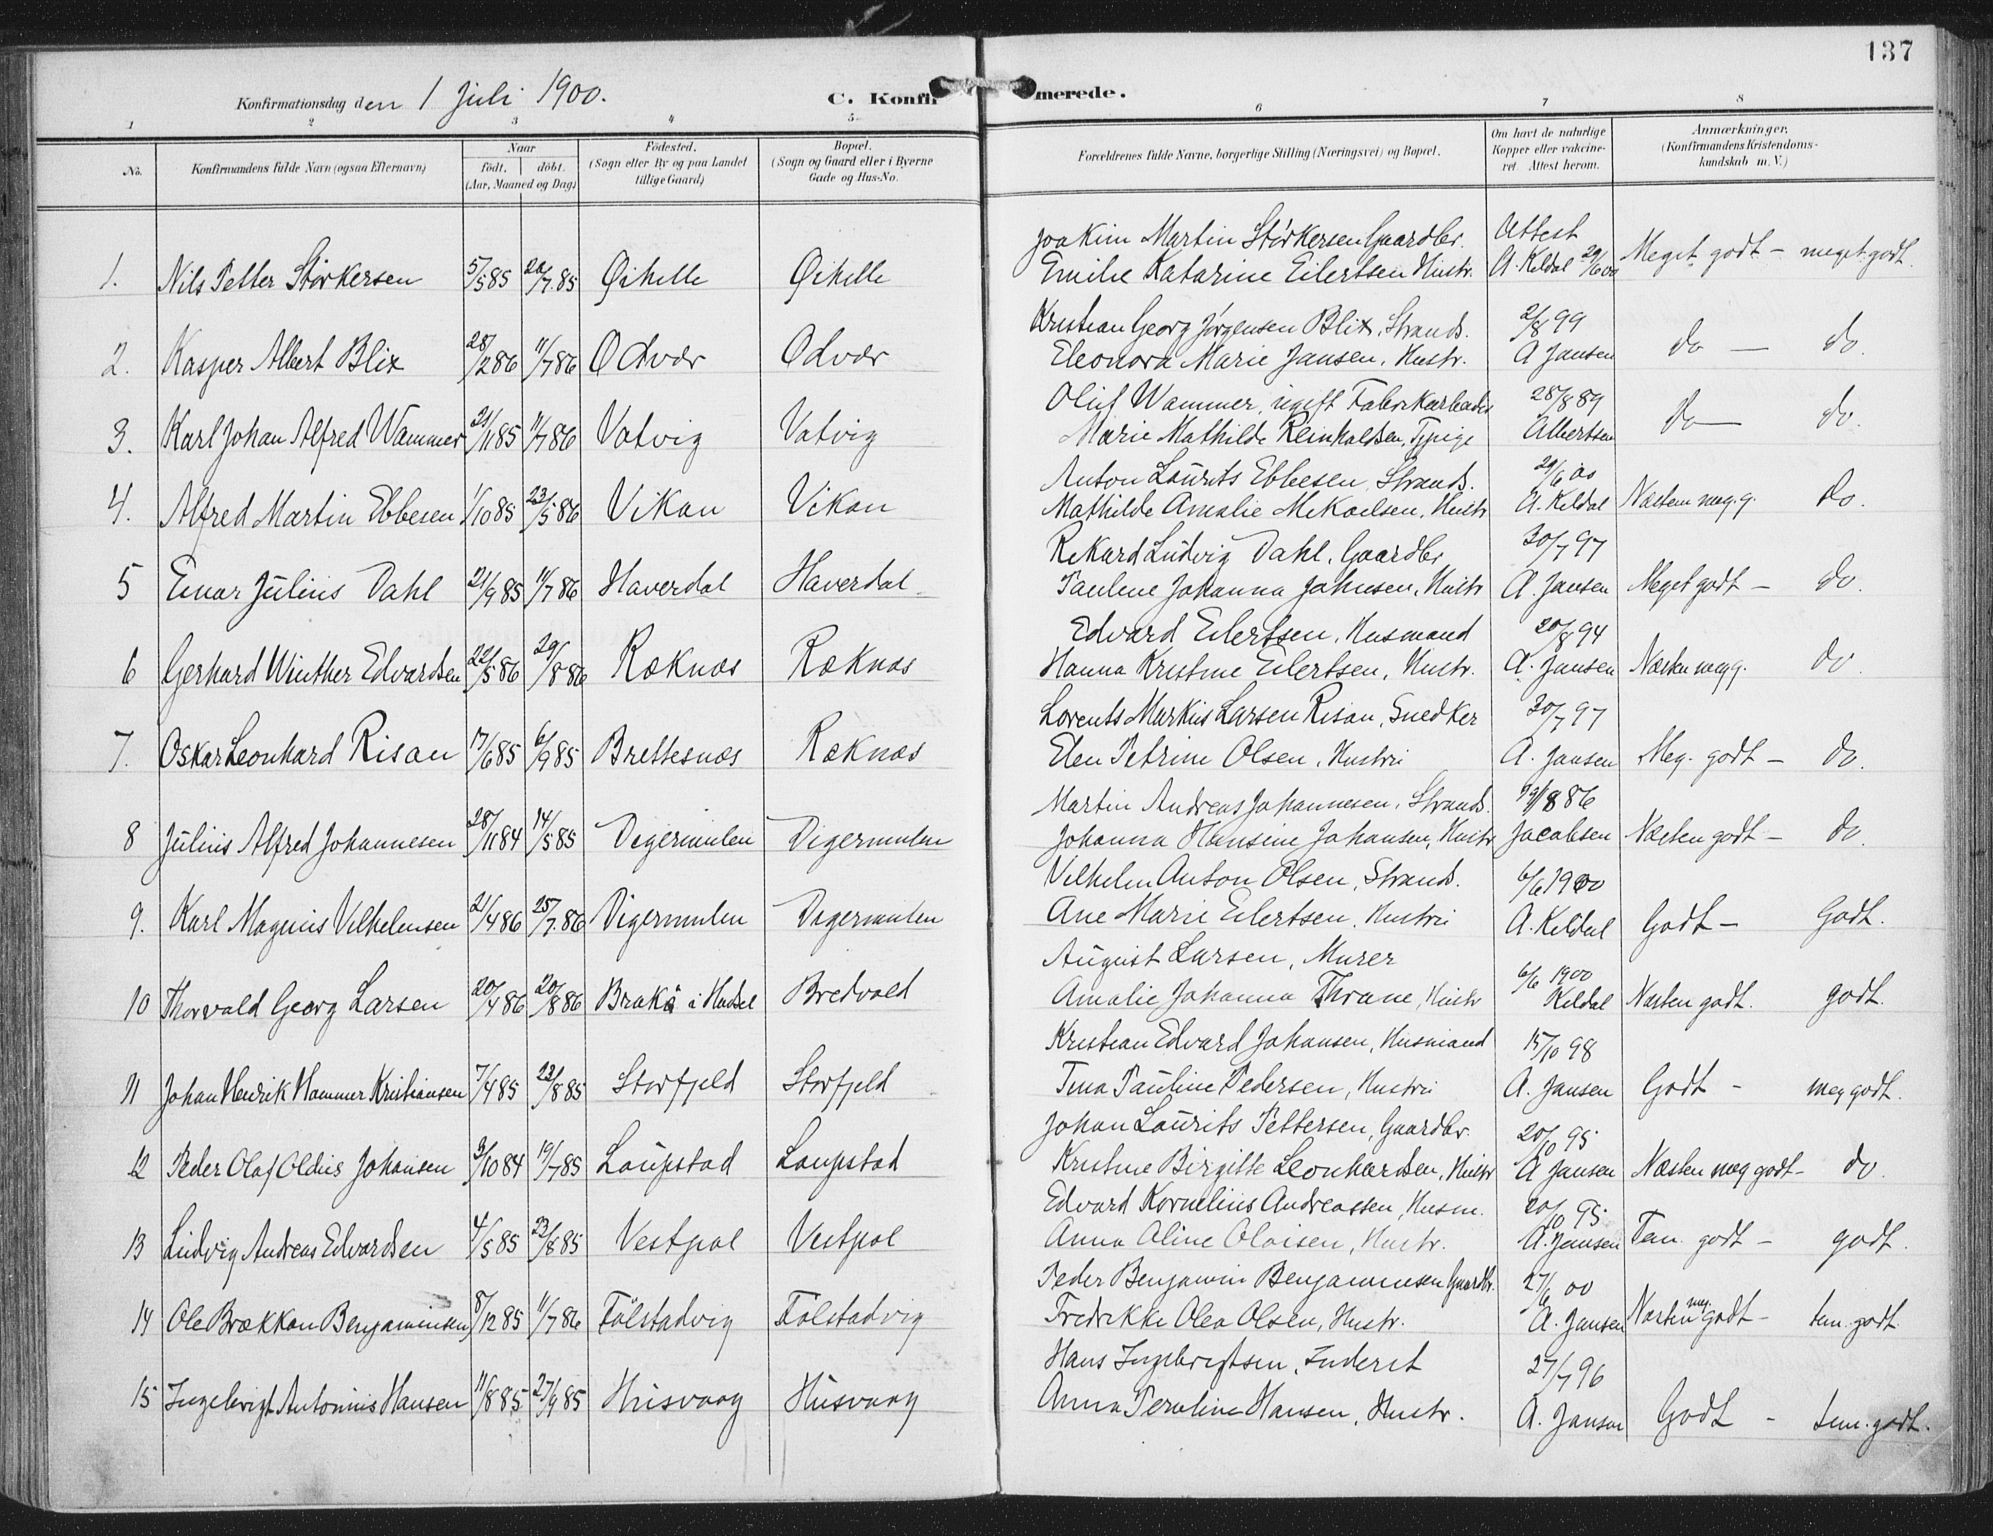 137
Konfirmationsdag den 1 Juli 1900.
C. Konfir merede.
1 2 3 4 5 6 7 8
No. Konfirmandens fulde Navn (ogsaa Efternavn) Naar födt. döbt. (Aar, Maaned og Dag) Födested. (Sogn eller By og paa Landet tillige Gaard) Bopæl. (Sogn og Gaard eller i Byerne Gade og Hus-No. Forældrenes fulde Navne, borgerlige Stilling (Næringsvei) og Bopæl. Om havt de naturlige Kopper eller vakcineret Attest herom. Anmærkninger. (Konfirmandens Kristendomskundskab m. V.)
Joakim Martin Störkersen Gaardbr. Attest
1. Nils Petter Störkersen 5/5 85 20/7.85 Öihelle Öihelle Emilie Katarine Eilertsen Hustr. A. Keldal 29/6 00 Meget godt - meget godt.
Kristian Georg Jørgensen Blix, Strands. 2/8 99
2. Kasper Albert Blix 28/2 86 11/7 86 Odvær Odvær Eleonora Marie Jansen, Hustr. A Jansen do - do.
Oluf Wammer, ugift Fabrikarbeider 28/8 89
3. Karl Johan Alfred Wammer 21/11 85 11/7 86 Vatvig Vatvig Marie Mathilde Reinholdsen, Tjpige Albertsen do - do.
Anton Laurits Ebbesen, Strands. 29/6 00
4. Alfred Martin Ebbesen 1/10 85 23/5 86 Vikan Vikan Mathilde Amalie Mikaelsen, Hustr A. Keldal Næsten meg. g. do.
Rikard Ludvig Dahl, Gaardbr 30/7 97
5 Einar Julius Dahl 21/9 85 11/7 86 Haverdal Haverdal Pauline Johanna Johnsen, Hustr A. Jansen Meget godt - do.
Edvard Eilertsen, Husmand 20/8 94
6 Gerhard Winther Edvardsen 22/5 86 29/8 86 Ræknæs Ræknæs Hanna Kristine Eilertsen, Hustr. A. Jansen Næsten meg g. do.
Lorents Markus Larsen Risan, Snedker 30/7 97
7. Oskar Leonhard Risan 17/6 85 6/9 85 Brettesnæs Ræknæs Elen Petrine Olsen, Hustru A. Jansen Meg. godt - do.
Martin Andreas Johannesen, Strands. 19/8 86
8 Julius Alfred Johannesen 28/11 84 14/5 85 Digermulen Digermulen Johanna Hansine Johansen, Hustr Jacobsen Næsten godt - do.
Vilhelm Anton Olsen, Strands. 6/6 1900
9. Karl Magnus Vilhelmsen 21/4 86 25/7.86 Digermulen Digermulen Ane Marie Eilertsen, Hustru A. Keldal Godt - Godt.
August Larsen, Murer 6/6 1900
10 Thorvald Georg Larsen 20/4 86 20/8 86 i Hadsel Bredvold Amalie Johanna Thrane, Hustr Keldal Næsten godt. godt.
Kristian Edvard Johansen, Husmand 15/10 98
11 Johan Henrik Hammer Kristiansen 7/4 85 23/8 85 Storfjeld Storfjeld Tina Pauline Pedersen, Hustru A. Jansen Godt - meg godt.
Johan Laurits Pettersen, Gaardbr. 20/10 95
12 Peder Olaf Oldus Johansen 3/10 84 19/7 85 Laupstad Laupstad Kristine Birgitte Leonhardsen, Hustr A Jansen Næsten meg godt - do.
Edvard Kornelius Andreassen, Husm. 20/10 95
13 Ludvig Andreas Edvardsen 4/5 85 23/8 85 Vestpol Vestpol Anna Oline Olaisen, Hustr. A. Jansen Tem. godt - godt.
Peder Benjamin Benjaminsen Gaardbr. 27/6 00
14 Ole Brækkan Benjaminsen 8/12 85 11/7 86 Fölstadvig Fölstadvig Fredrikke Olea Olsen, Hustr. A. Jansen Næsten meg. godt - tem. godt.
Hans Ingebrigtsen, Inderst 27/7 96
15 Ingebrigt Antonius Hansen 11/8 85 27/9 85 Husvaag Husvaag Anna Peroline Hansen, Hustr. A. Jansen Godt - tem. godt.